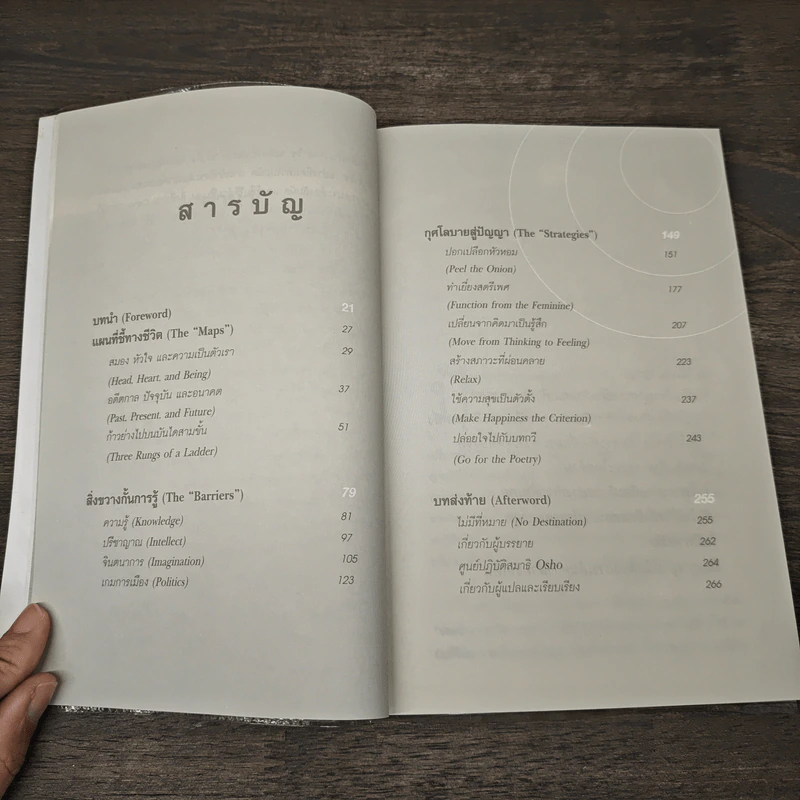 สารบัญ
บทนำ (Foreword) 21
แผนที่ชี้ทางชีวิต (The “Maps”) 27
สมอง หัวใจ และความเป็นตัวเรา 29
(Head, Heart, and Being)
อดีตกาล ปัจจุบัน และอนาคต 37
(Past, Present, and Future)
ก้าวย่างไปบนบันไดสามขั้น 51
(Three Rungs of a Ladder)
สิ่งขวางกั้นการรู้ (The “Barriers”) 79
ความรู้ (Knowledge) 81
ปรีชาญาณ (Intellect) 97
จินตนาการ (Imagination) 105
เกมการเมือง (Politics) 123
กุศโลบายสู่ปัญญา (The “Strategies”) 149
ปอกเปลือกหัวหอม 151
(Peel the Onion)
ทำเยี่ยงสตรีเพศ 177
(Function from the Feminine)
เปลี่ยนจากคิดมาเป็นรู้สึก 207
(Move from Thinking to Feeling)
สร้างสภาวะที่ผ่อนคลาย 223
(Relax)
ใช้ความสุขเป็นตัวตั้ง 237
(Make Happiness the Criterion)
ปล่อยใจไปกับบทกวี 243
(Go for the Poetry)
บทส่งท้าย (Afterword) 255
ไม่มีที่หมาย (No Destination) 255
เกี่ยวกับผู้บรรยาย 262
ศูนย์ปฏิบัติสมาธิ Osho 264
เกี่ยวกับผู้แปลและเรียบเรียง 266